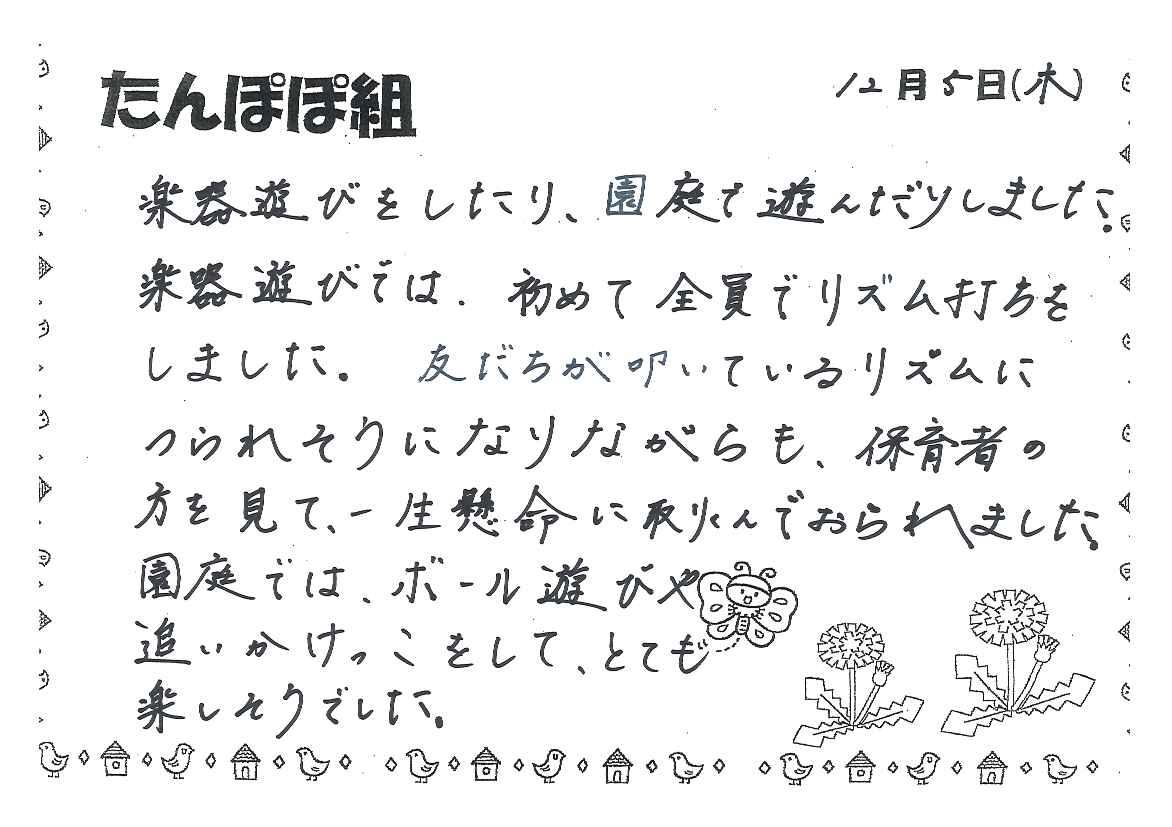 たんぽぽ組
12月5日(木)
楽器遊びをしたり、園庭で遊んだりしました。
楽器遊びでは、初めて全員でリズム打ちを
しました。友だちが叩いているリズムに
つられそうになりながらも、保育者の
方を見て、一生懸命に取り組んでおられました。
園庭では、ボール遊びや
追いかけっこをして、とても
楽しそうでした。